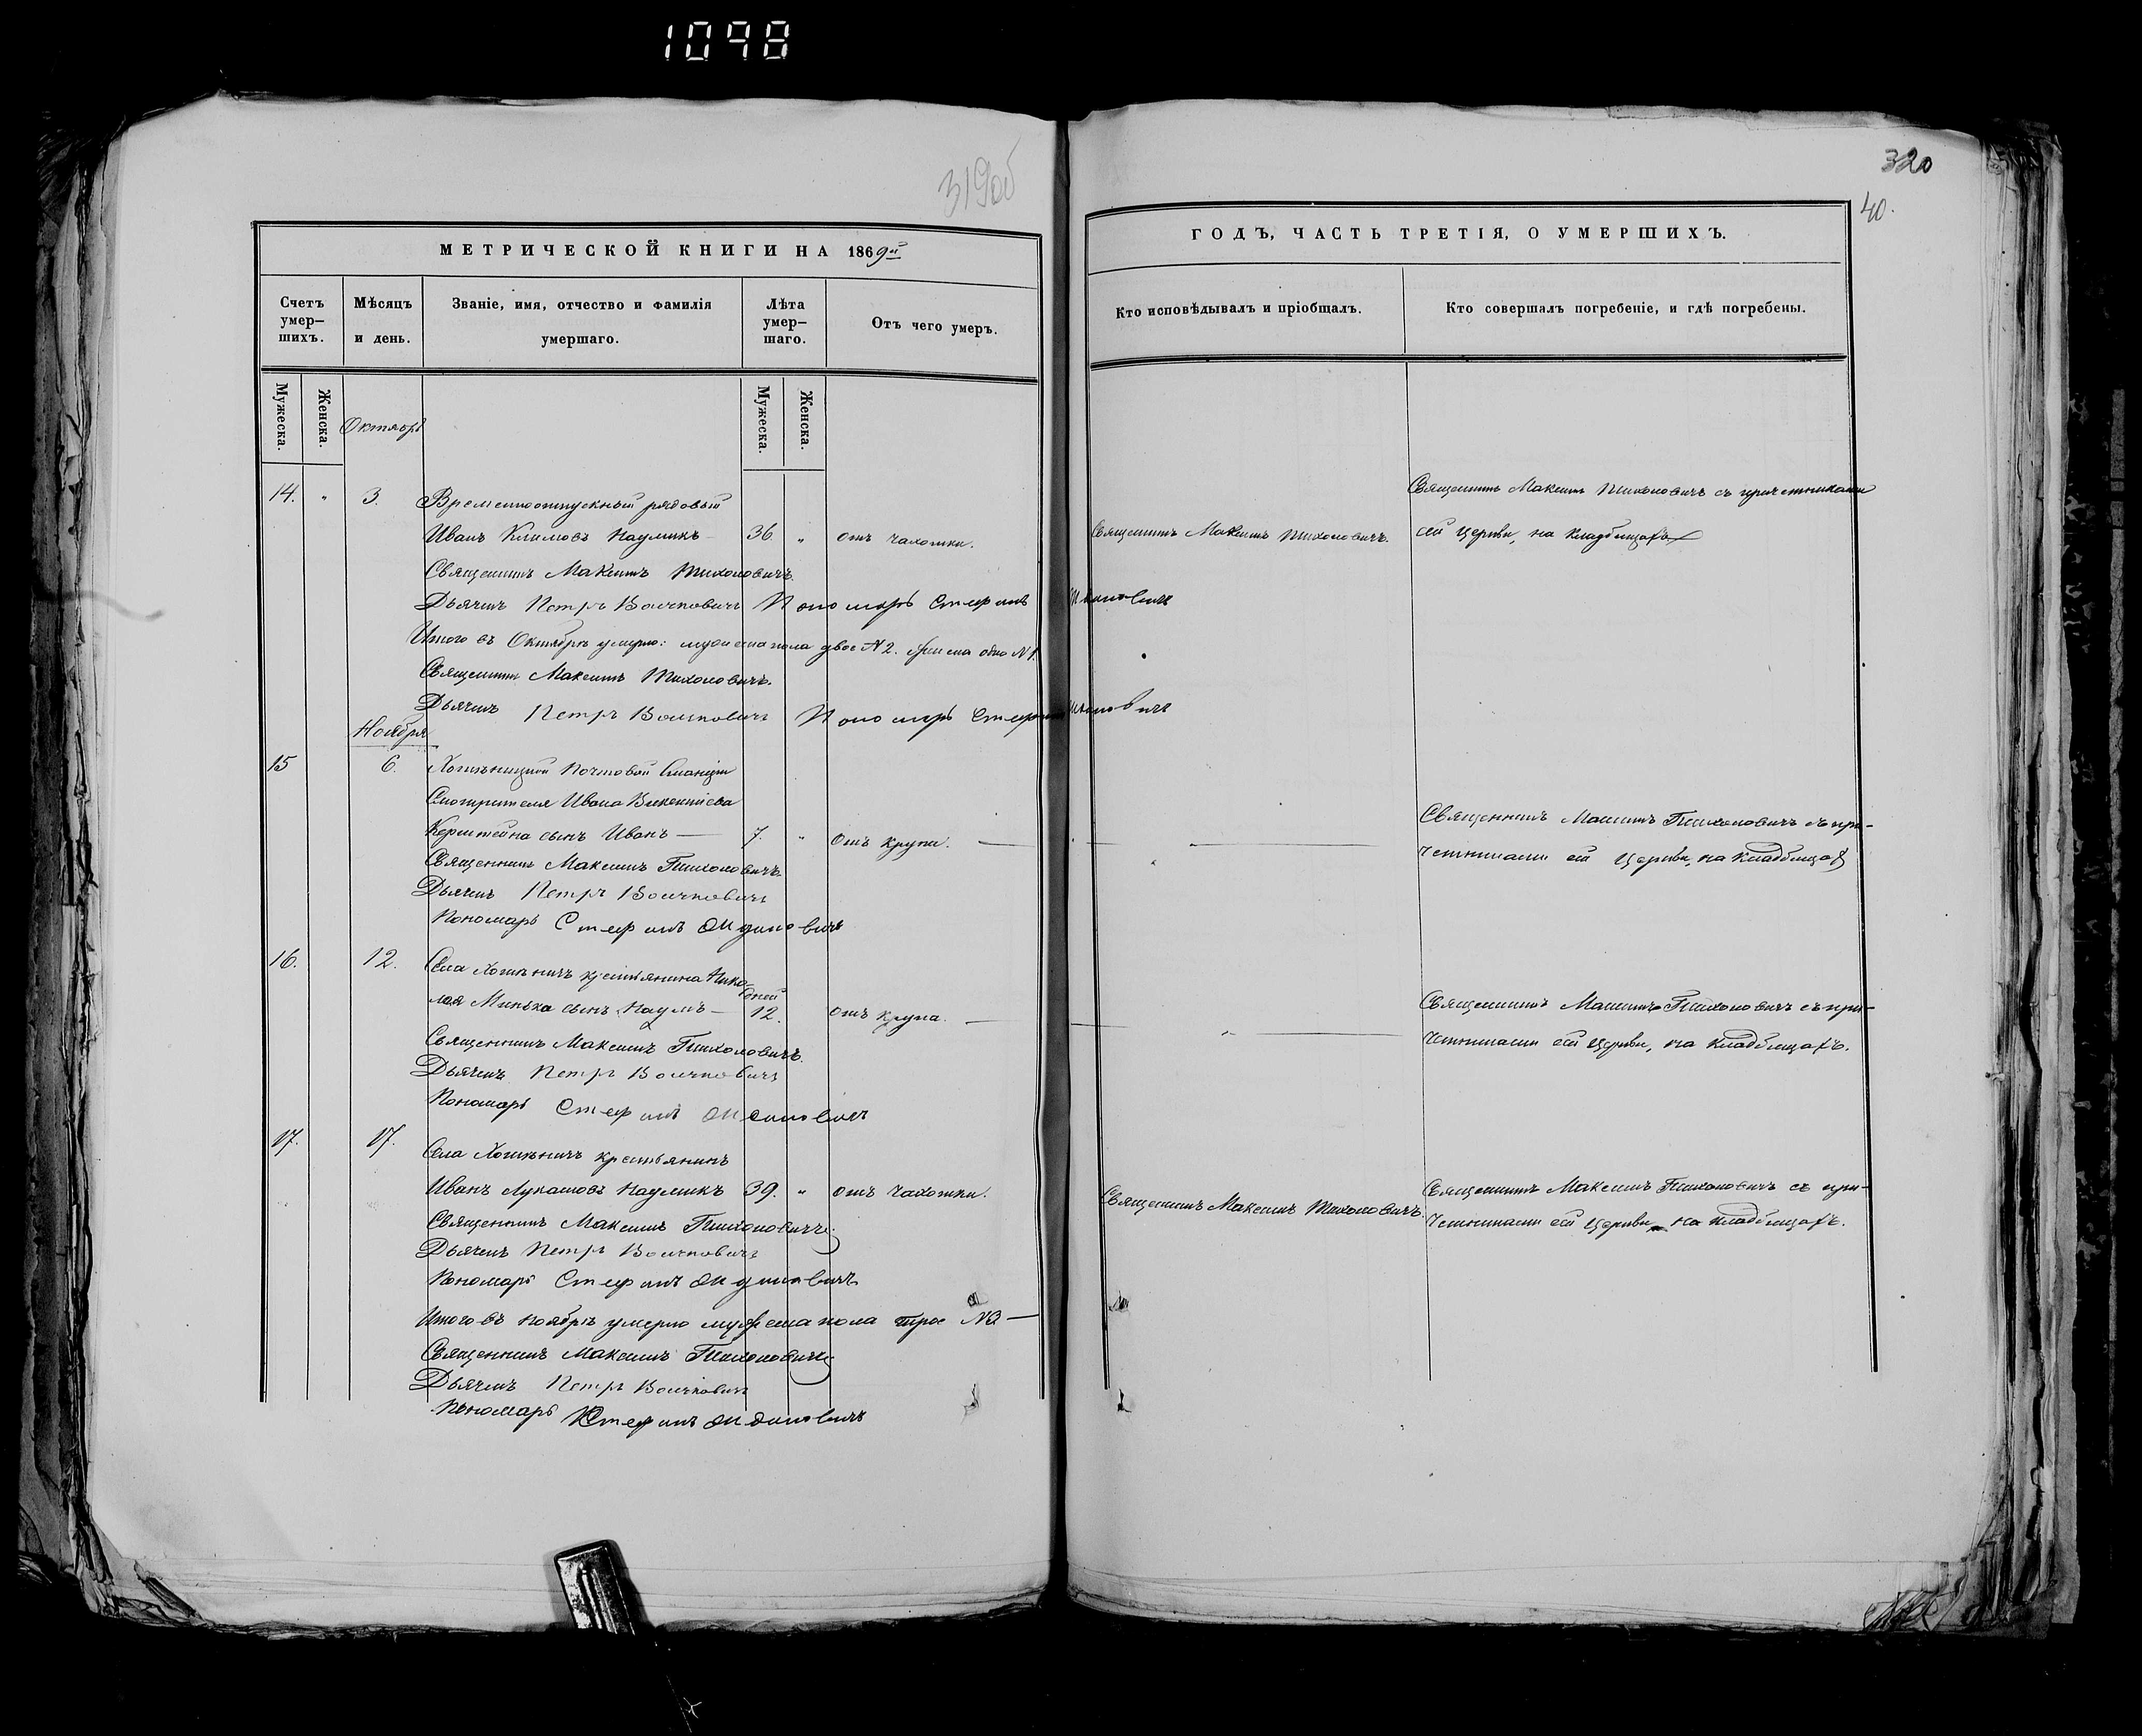 1098
319об
320
40.
МЕТРИЧЕСКОЙ КНИГИ НА 1869й
ГОДЪ, ЧАСТЬ ТРЕТІЯ, О УМЕРШИХЪ.
Счетъ умер-шихъ.
Мѣсяцъ и день.
Званіе, имя, отчество и фамилія умершаго.
Лѣта умер-шаго.
Отъ чего умеръ.
Кто исповѣдывалъ и пріобщалъ.
Кто совершалъ погребеніе, и гдѣ погребены.
Мужеска.
Женска.
Мужеска.
Женска.
Октябрь
14. " 3. Временноотпускный рядовый
Иванъ Климовъ Наумикъ 36 " отъ чахотки.
Священникъ Максимъ Тихоновичъ.
Священникъ Максимъ Тихоновичъ съ причетниками
сей церкви, на кладбищахъ
Священникъ Максимъ Тихоновичъ.
Дьячекъ Петръ Пономарь Стефанъ
Итого въ Октябрѣ умерло: мужеска пола двое №2. женска одно №1.
Священникъ Максимъ Тихоновичъ.
Дьячекъ Петръ Пономарь Стефанъ
Ноября
15 6. Хотыницкой Почтовой Станціи
Смотрителя Ивана Викентіева
сынъ Иванъ — 7. " отъ крупа. —
Священникъ Максимъ Тихоновичъ съ при-
четниками сей Церкви, на кладбищахъ
Священникъ Максимъ Тихоновичъ.
Дьячекъ Петръ
Пономарь Стефанъ
16. 12. Села Хотыничъ крестьянина Нико-
лая Минька сынъ Наумъ — дней 12. отъ крупа. —
Священникъ Максимъ Тихоновичъ съ при-
четниками сей Церкви, на кладбищахъ.
Священникъ Максимъ Тихоновичъ.
Дьячекъ Петръ
Пономарь Стефанъ
17. 17. Села Хотыничъ крестьянинъ
Иванъ Лукашовъ Наумикъ 39. " отъ чахотки.
Священникъ Максимъ Тихоновичъ.
Священникъ Максимъ Тихоновичъ съ при-
четниками сей Церкви, на кладбищахъ.
Священникъ Максимъ Тихоновичъ
Дьячекъ Петръ
Пономарь Стефанъ
Итого въ Ноябрѣ умерло мужеска пола трое №3 —
Священникъ Максимъ Тихоновичъ
Дьячекъ Петръ
Пономарь Стефанъ